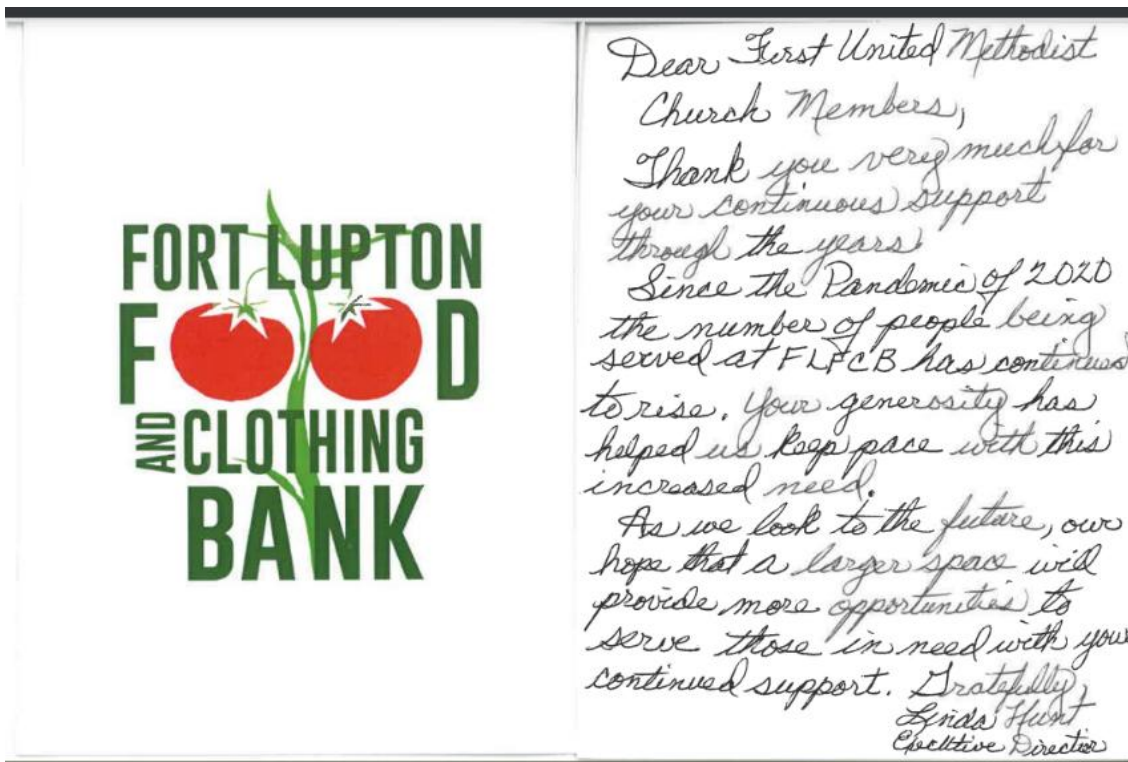 FORT LUPTON
FOOD
AND CLOTHING
BANK
Dear First United Methodist
Church Members,
Thank you very much for
your continuous support
through the years.
Since the Pandemic of 2020
the number of people being
served at FLFCB has continued
to rise. Your generosity has
helped us keep pace with this
increased need.
As we look to the future, our
hope that a larger space will
provide more opportunities to
serve those in need with your
continued support. Gratefully,
Linda Hunt
Executive Director